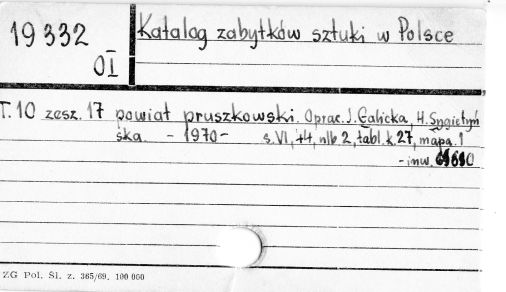 19332
OI
Katalog zabytków sztuki w Polsce
T. 10 zesz. 17 powiat pruszkowski. Oprac. I. Galicka, H. Sygietyń
ska. - 1970 - s. VI, 44, nlb 2, tabl. k. 27, mapa. 1
- inw.
ZG Pol. Śl. z. 365/69. 100 000